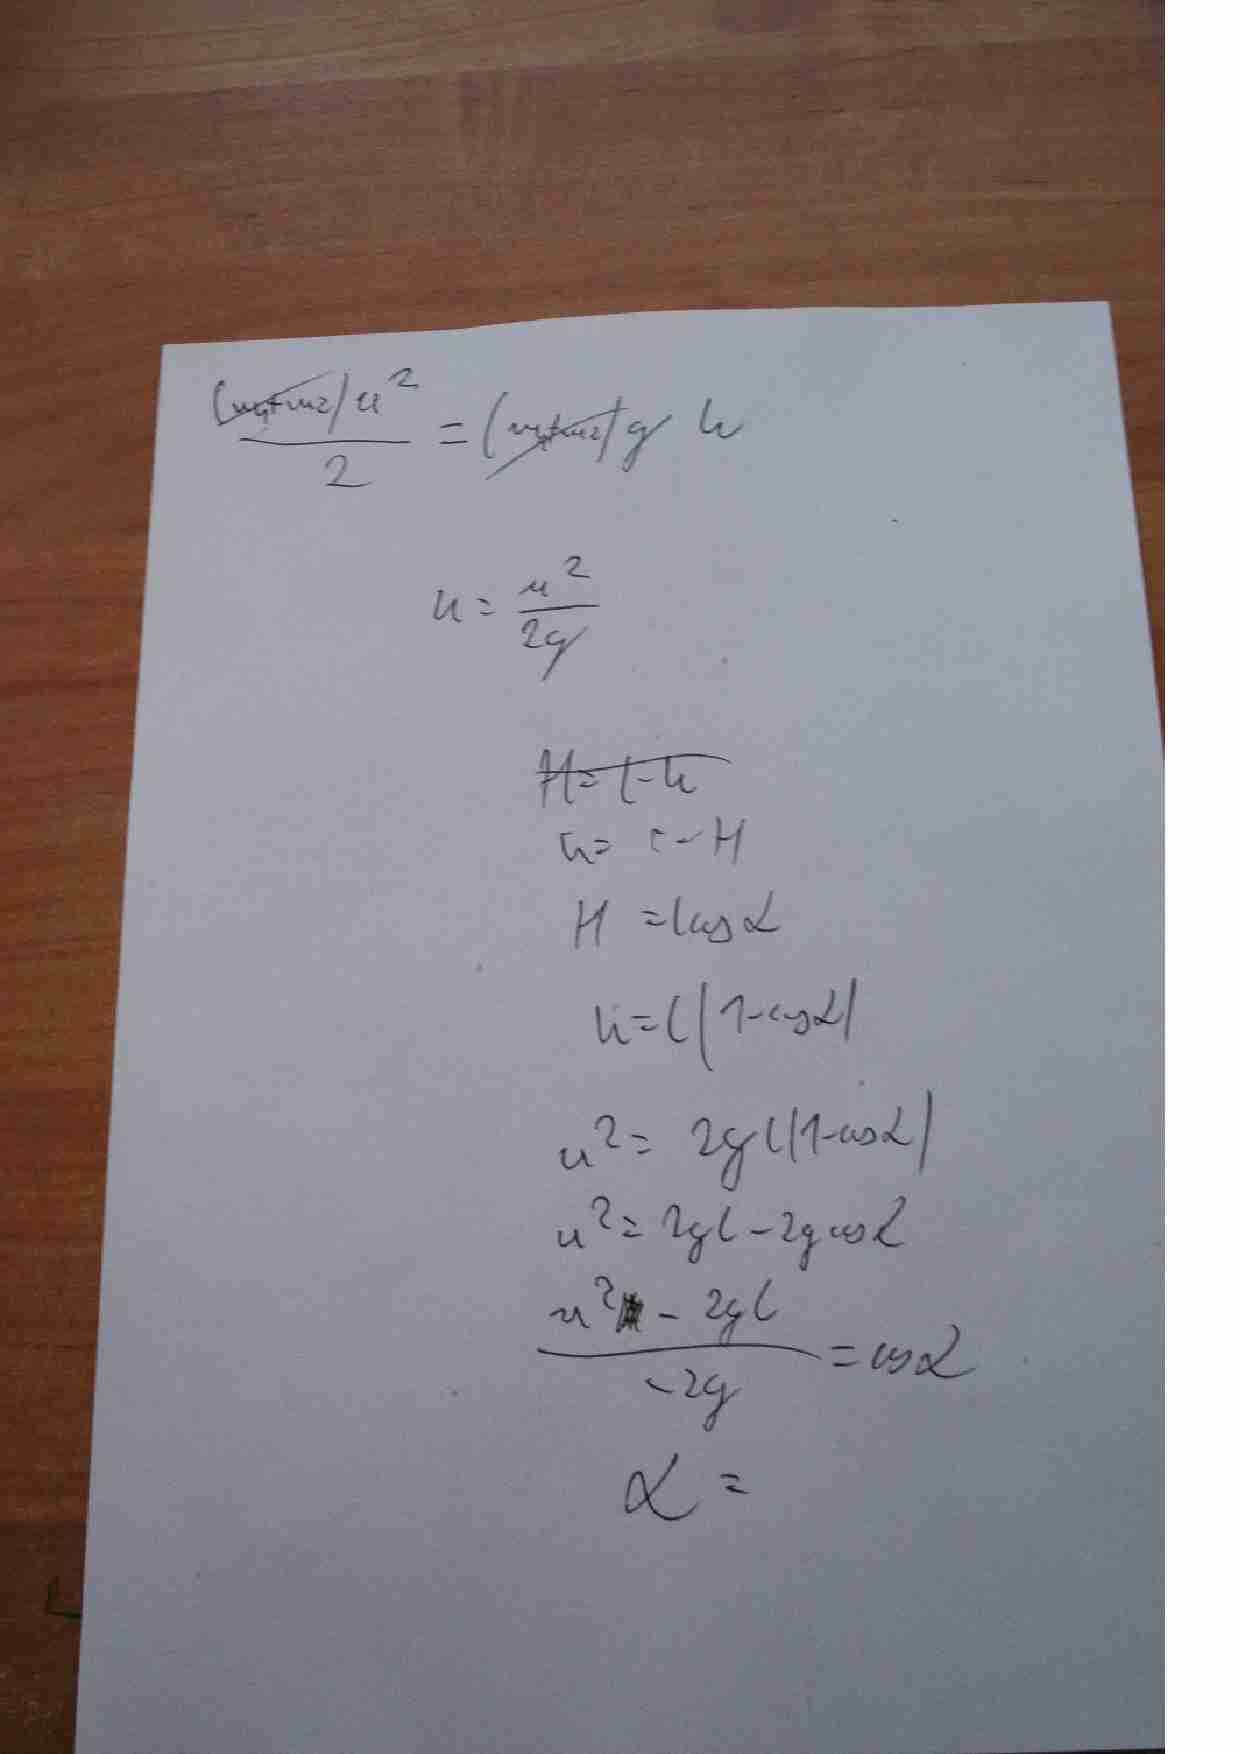 (m₁+m₂)u²/2 = (m₁+m₂)g h
h = u²/2g
H = l - h
h = l - H
H = l cos α
h = l(1-cos α)
u² = 2gl(1-cos α)
u² = 2gl - 2g cos α
(u² - 2gl)/(-2g) = cos α
α =